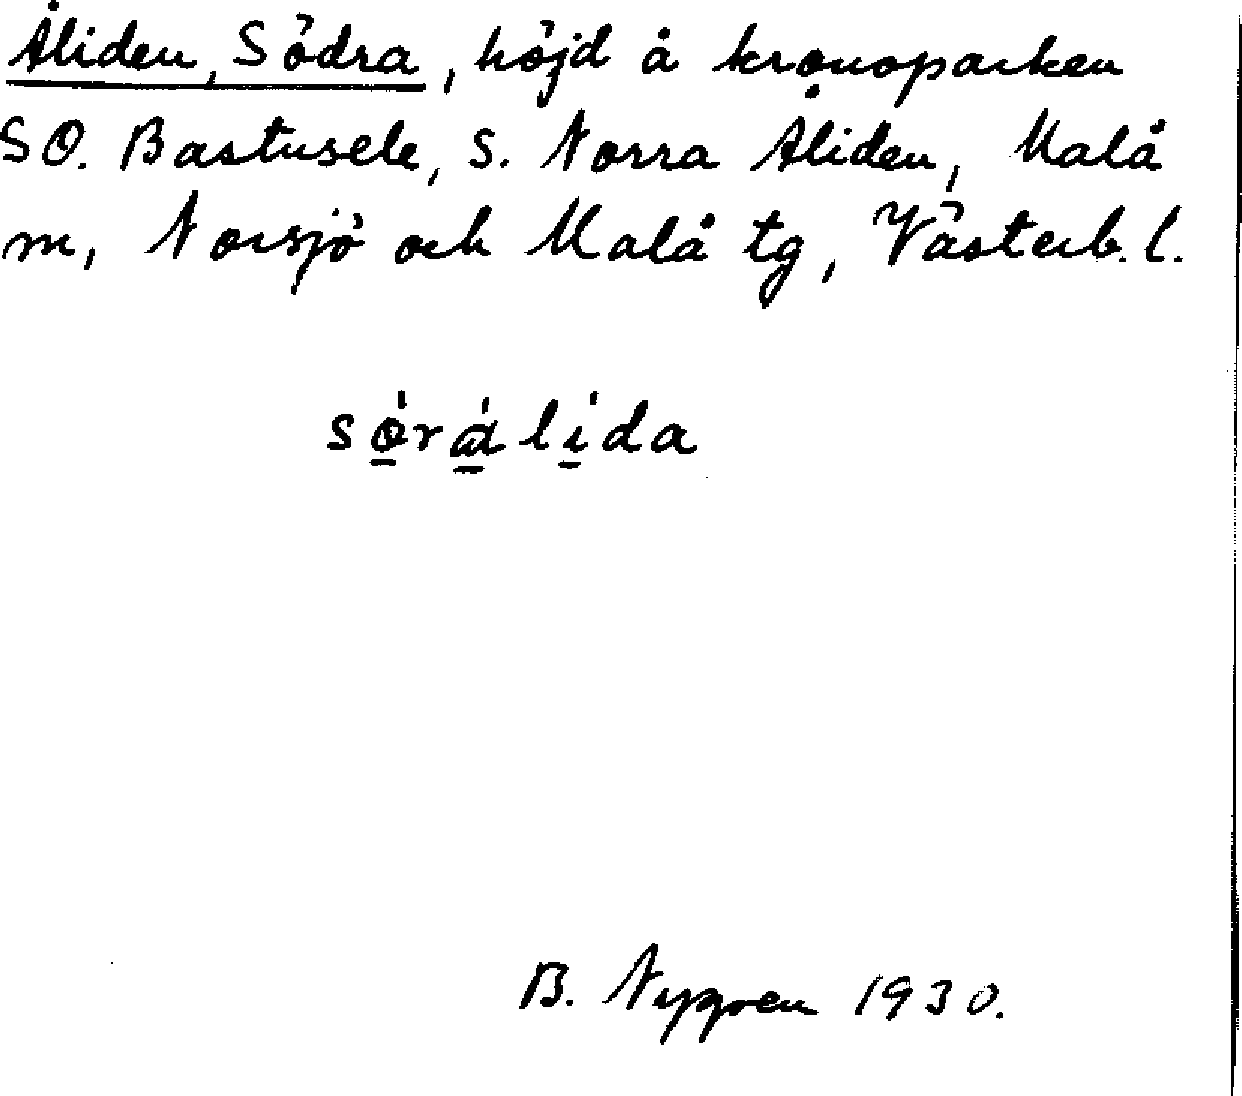 Åliden, Södra, höjd å kronoparken
SO. Bastusele, S. Norra Åliden, Malå
m, Norsjö och Malå tg, Västerb. l.
sǿ̠rɑ̠́lí̠da
B. Nygren 1930.